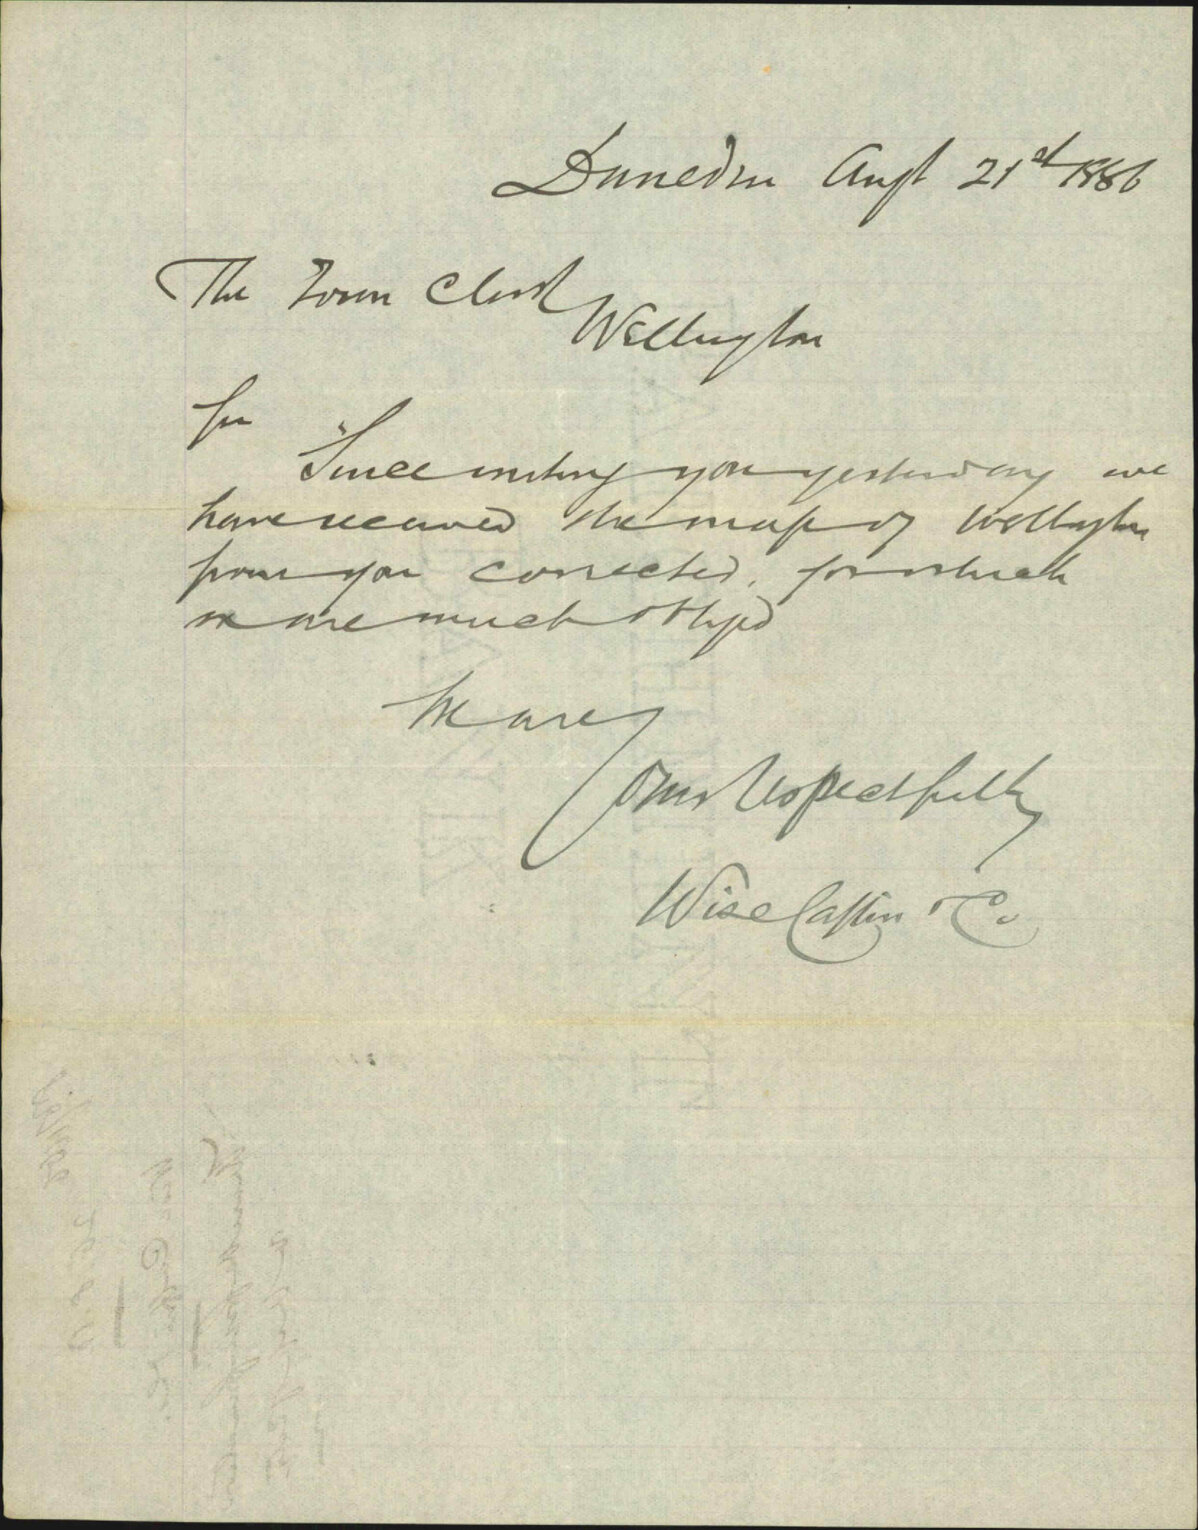 Dunedin Augt 21st 1886
The Town Clerk
Wellington
Sir
Since writing you yesterday we
have received the map of Wellington
from you corrected, for which
we are much obliged
We are
Yours respectfully
Wise Caffin & Co.